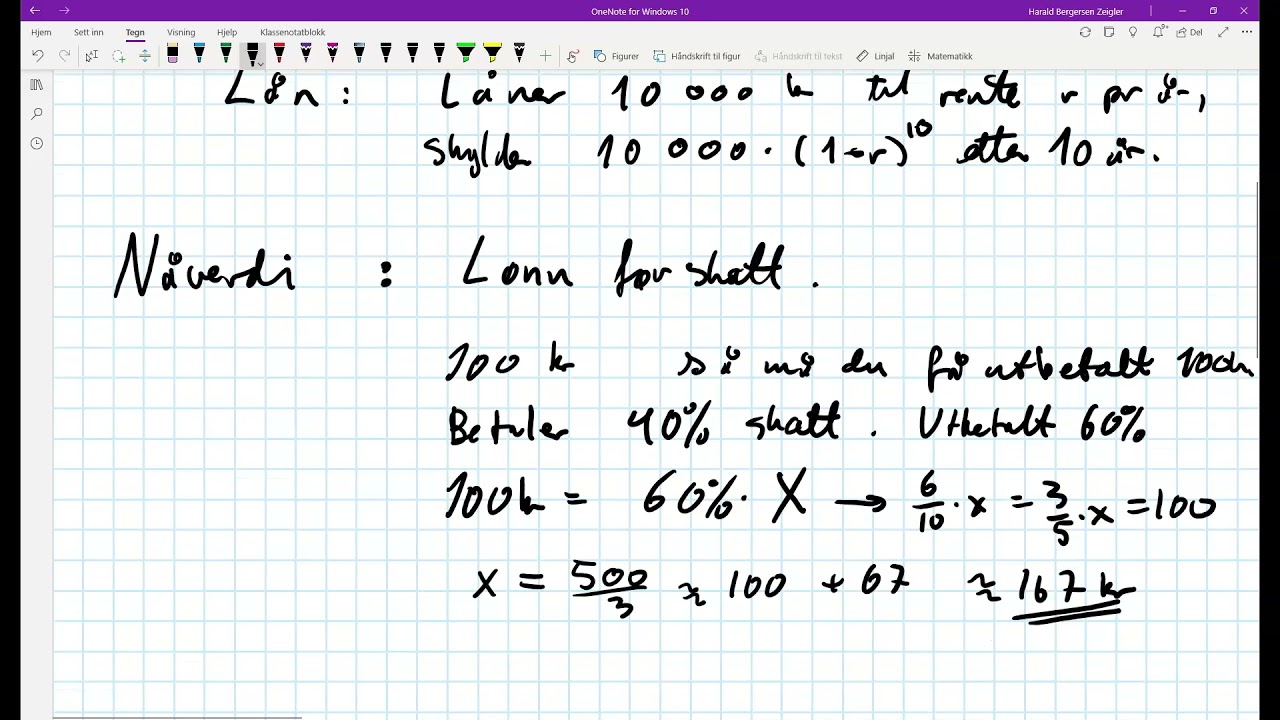 OneNote for Windows 10
Harald Bergersen Zeigler
Hjem Sett inn Tegn Visning Hjelp Klassenotatblokk
Del
Figurer Håndskrift til figur Håndskrift til tekst Linjal Matematikk
Lån: Låner 10 000 kr til rente r pr år,
skylder 10 000 · (1+r)^10 etter 10 år.
Nåverdi : Lønn før skatt.
100 kr så må du få utbetalt 100kr
Betaler 40% skatt. Utbetalt 60%
100kr = 60% · X → 6/10 · x = 3/5 · x = 100
x = 500/3 ≈ 100 + 67 ≈ 167 kr